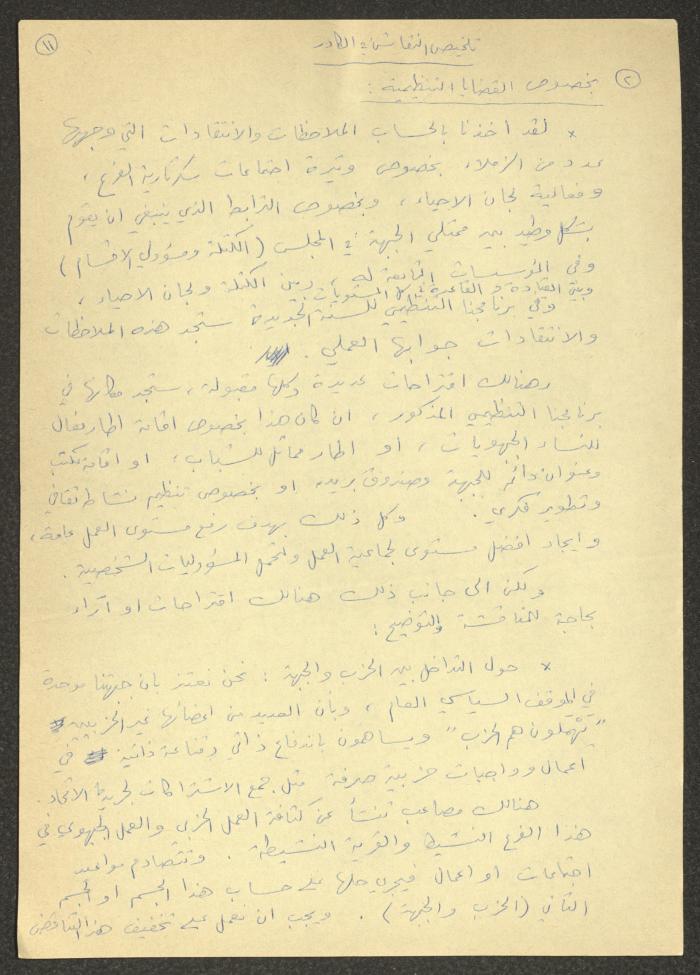 ١١
تلخيص النقاش في الكادر
٢
بخصوص القضايا التنظيمية :
* لقد أخذنا بالحساب الملاحظات والانتقادات التي وجهها
عدد من الزملاء بخصوص وتيرة اجتماعات سكرتارية الفرع ،
وفعالية لجان الاحياء ، وبخصوص الترابط الذي ينبغي ان يقوم
بشكل وطيد بين ممثلي الجبهة في المجلس (الكتلة ومسؤولي الاقسام)
وفي المؤسسات التابعة له ، وبين الكتلة ولجان الاحياء ،
وبين القيادة والقاعدة في كل المستويات
وفي برنامجنا التنظيمي للسنة الجديدة ستجد هذه الملاحظات
والانتقادات جوابها العملي .
وهنالك اقتراحات عديدة وكلها مقبولة ، ستجد مكانها في
برنامجنا التنظيمي المذكور ، ان كان هذا بخصوص اقامة اطار فعال
للنساء الجبهويات ، أو اطار مماثل للشباب ، او اقامة مكتب
وعنوان دائم للجبهة وصندوق بريد او بخصوص تنظيم نشاط ثقافي
وتطوير فكري . وكل ذلك بهدف رفع مستوى العمل عامة ،
وايجاد افضل مستوى لجماعية العمل وتحمل المسؤوليات الشخصية .
ولكن الى جانب ذلك هنالك اقتراحات او آراء
بحاجة للمناقشة والتوضيح :
* حول التداخل بين الحزب والجبهة : نحن نعتز بان جبهتنا موحدة
في الموقف السياسي العام ، وبأن العديد من اعضائها غير الحزبيين
" هم الحزب " ويساهمون باندفاع ذاتي وقناعة ذاتية في
اعمال وواجبات حزبية صرفة مثل جمع الاشتراكات لجريدة الاتحاد .
هنالك مصاعب تنشأ عن كثافة العمل الحزبي والعمل الجبهوي في
هذا الفرع النشيط والقرية النشيطة . وتتصادم مواعيد
اجتماعات او اعمال فيجري حلها على حساب هذا الجسم او الجسم
الثاني (الحزب والجبهة) . ويجب ان نعمل على تخفيف هذا التناقض